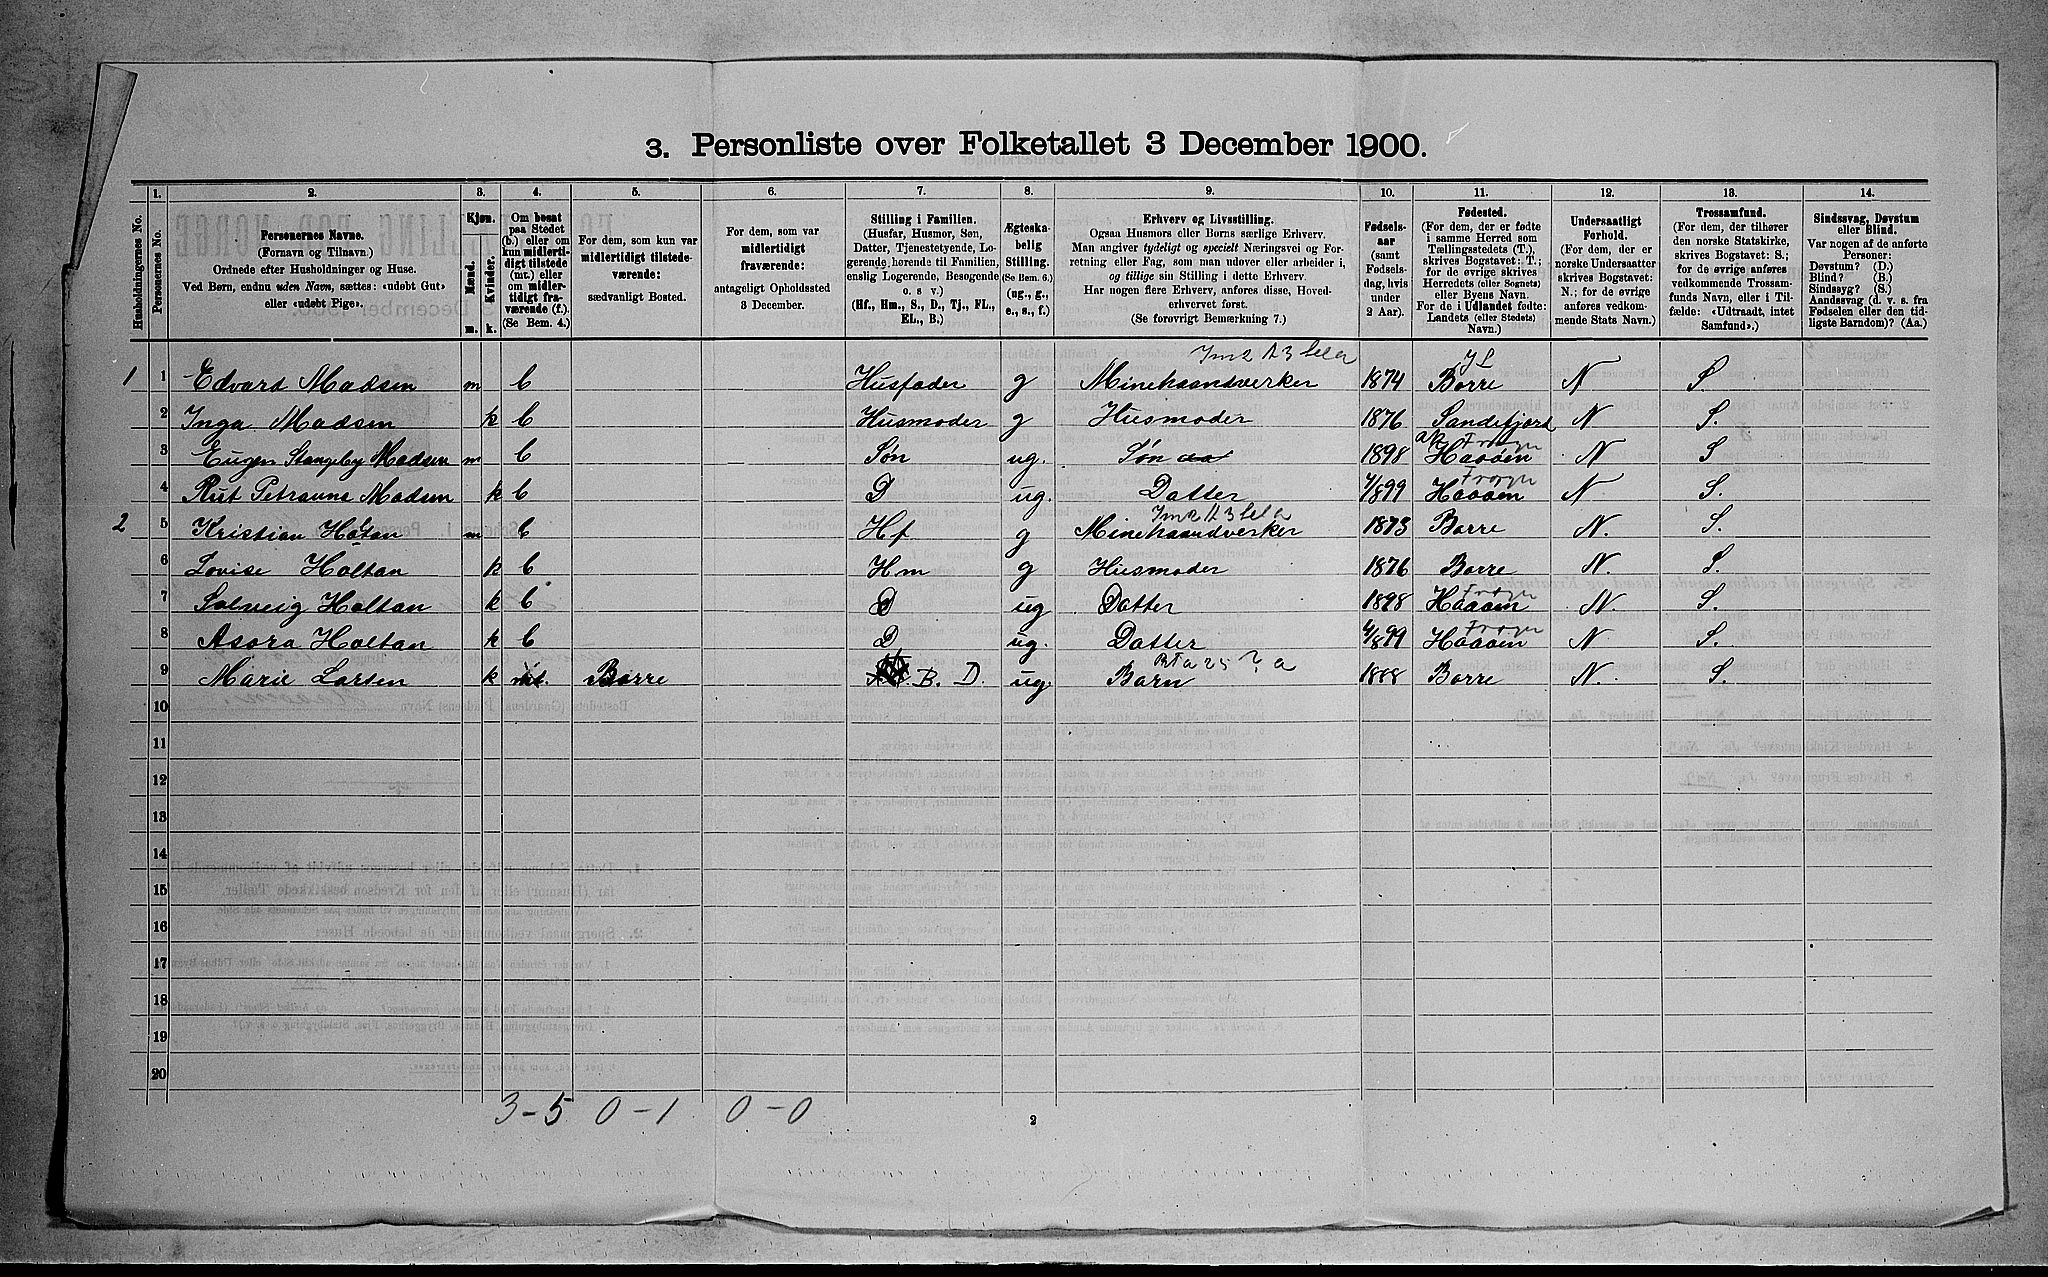 3. Personliste over Folketallet 3 December 1900.
Husholdningernes No.
1. Personernes No.
2. Personernes Navne. (Fornavn og Tilnavn.) Ordnede efter Husholdninger og Huse. Ved Børn, endnu uden Navn, sættes: «udøbt Gut» eller «udøbt Pige».
3. Kjøn. Mænd. m. Kvinder. k.
4. Om bosat paa Stedet (b.) eller om kun midlertidigt tilstede (mt.) eller om midlertidigt fraværende (f.). (Se Bem. 4.)
5. For dem, som kun var midlertidigt tilstedeværende: sædvanligt Bosted.
6. For dem, som var midlertidigt fraværende: antageligt Opholdssted 3 December.
7. Stilling i Familien. (Husfar, Husmor, Søn, Datter, Tjenestetyende, Logerende, herende til Familien, enslig Logerende, Besøgende o. s v.) (Hf., Hm., S., D., Tj., FL., EL., B.)
8. Ægteskabelig Stilling. (Se Bem. 6.) (ug., g., e., s., f.)
9. Erhverv og Livsstilling. Ogsaa Husmors eller Børns særlige Erhverv. Man angiver tydeligt og specielt Næringsvei og Forretning eller Fag, som man udover eller arbeider i, og tillige sin Stilling i dette Erhverv. Har nogen flere Erhverv, anføres disse, Hovederhvervet først. (Se forøvrigt Bemærkning 7.)
10. Fødselsaar (samt Fødselsdag, hvis under 2 Aar).
11. Fødested. (For dem, der er fødte i samme Herred som Tællingsstedets (T.), skrives Bogstavet: T.; for de øvrige skrives Herredets (eller Sognets) eller Byens Navn. For de i Udlandet fødte: Landets (eller Stedets) Navn.)
12. Undersaatligt Forhold. (For dem, der er norske Undersaatter skrives Bogstavet: N.; for de øvrige anføres vedkommende Stats Navn.)
13. Trossamfund. (For dem, der tilhører den norske Statskirke, skrives Bogstavet: S.; for de øvrige anføres vedkommende Trossamfunds Navn, eller i Tilfælde: «Udtraadt, intet Samfund».)
14. Sindssvag, Døvstum eller Blind. Var nogen af de anførte Personer: Døvstum? (D.) Blind? (B.) Sindssyg? (S.) Aandssvag (d. v. s. fra Fødselen eller den tidligste Barndom)? (Aa.)
1 1 Edvard Madsen m b Husfader g Minehaandverker 1874 Borre N S
2 Inga Madsen k b Husmoder g Husmoder 1876 Sandefjord N S.
3 Eugen Stangeby Madsen m b Søn ug. Søn 1898 Haaøen Frogn N S
4 Rut Petrauna Madsen k b D ug. Datter 4/899 Haaøen Frogn N S.
2 5 Kristian Holtan m b Hf g Minehaandverker 1873 Borre N. S.
6 Lovise Holtan k b Hm g Husmoder 1876 Borre N. S.
7 Solveig Holtan k b D ug Datter 1898 Haaøen Frogn N. S.
8 Asora Holtan k b D ug. Datter 4/899 Haaøen Frogn N S.
9 Marie Larsen k mt. Borre B. D. ug. Barn 1888 Borre N. S.
10
11
12
13
14
15
16
17
18
19
20
3-5 0-1 0-0
2